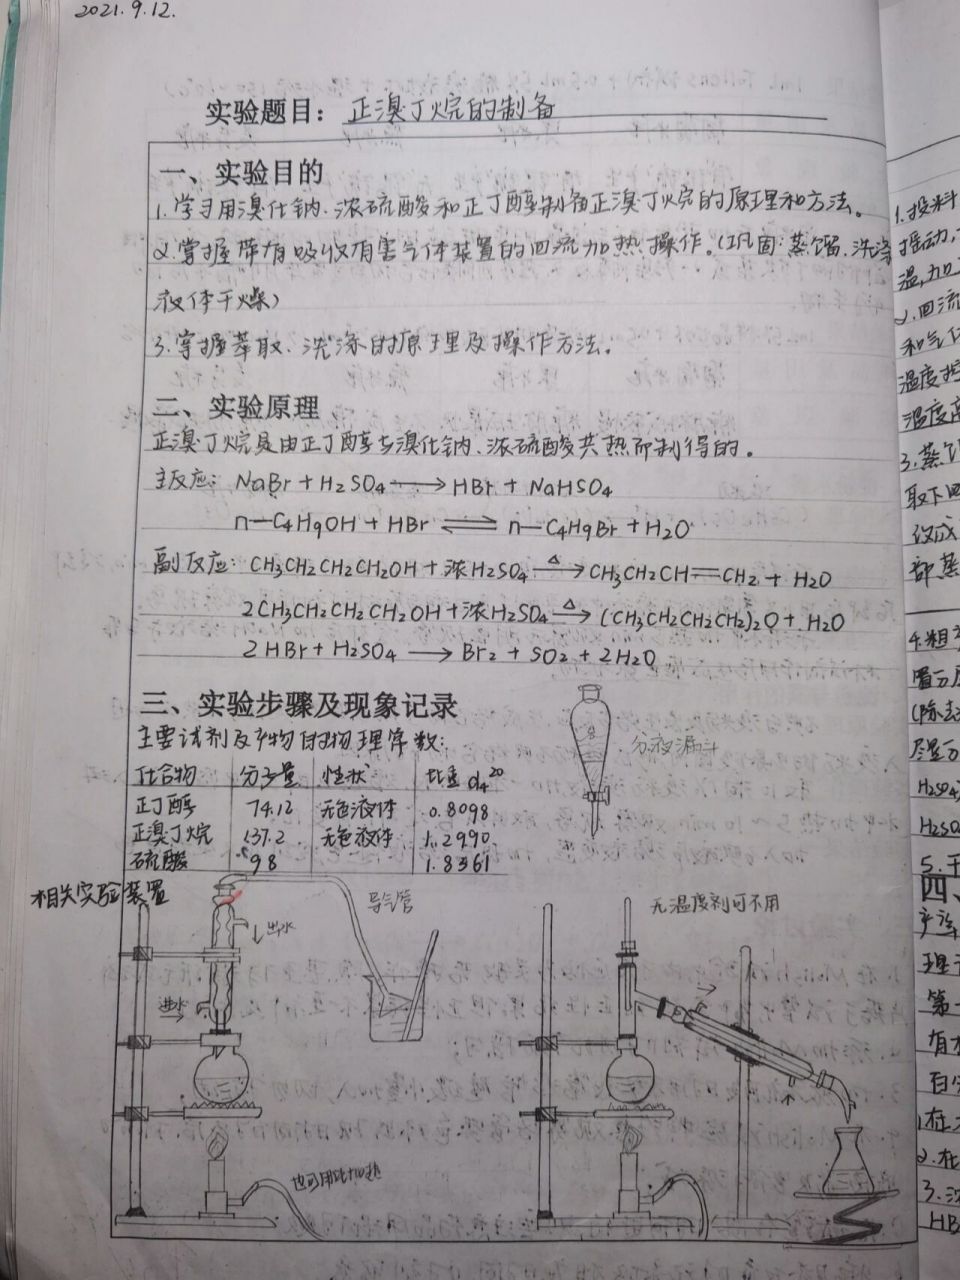 2021.9.12.
实验题目：正溴丁烷的制备
一、实验目的
1.学习用溴化钠、浓硫酸和正丁醇制备正溴丁烷的原理和方法。
2.掌握带有吸收有害气体装置的回流加热操作。（巩固：蒸馏、洗涤
液体干燥）
3.掌握萃取、洗涤的原理及操作方法。
二、实验原理
正溴丁烷是由正丁醇与溴化钠、浓硫酸共热而制得的。
主反应：NaBr + H₂SO₄ ⟶ HBr + NaHSO₄
n—C₄H₉OH + HBr ⇌ n—C₄H₉Br + H₂O
副反应：CH₃CH₂CH₂CH₂OH + 浓H₂SO₄ —Δ→ CH₃CH₂CH=CH₂ + H₂O
2CH₃CH₂CH₂CH₂OH + 浓H₂SO₄ —Δ→ (CH₃CH₂CH₂CH₂)₂O + H₂O
2HBr + H₂SO₄ ⟶ Br₂ + SO₂ + 2H₂O
三、实验步骤及现象记录
主要试剂及产物的物理常数：
分液漏斗
化合物 分子量 性状 比重d₄²⁰
正丁醇 74.12 无色液体 0.8098
正溴丁烷 137.2 无色液体 1.2990
硫酸 98 1.8361
相关实验装置
导气管
无温度剂可不用
出水
进水
1.投料
摇动，
温，加
2.回流
和气体
温度
温度高
3.蒸
取下
改成
部蒸
4.粗
置分
(除去
尽量分
H₂SO₄
H₂SO
5.干
四、
理
第一
有
百分
1.在
2.在
3.浓
HB